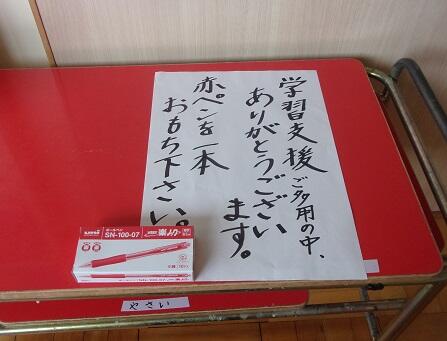 学習支援ご多用の中、
ありがとうござい
ます。
赤ペンを一本
おもち下さい。
uni
ボールペン
SN-100-07
楽ノック
やさい